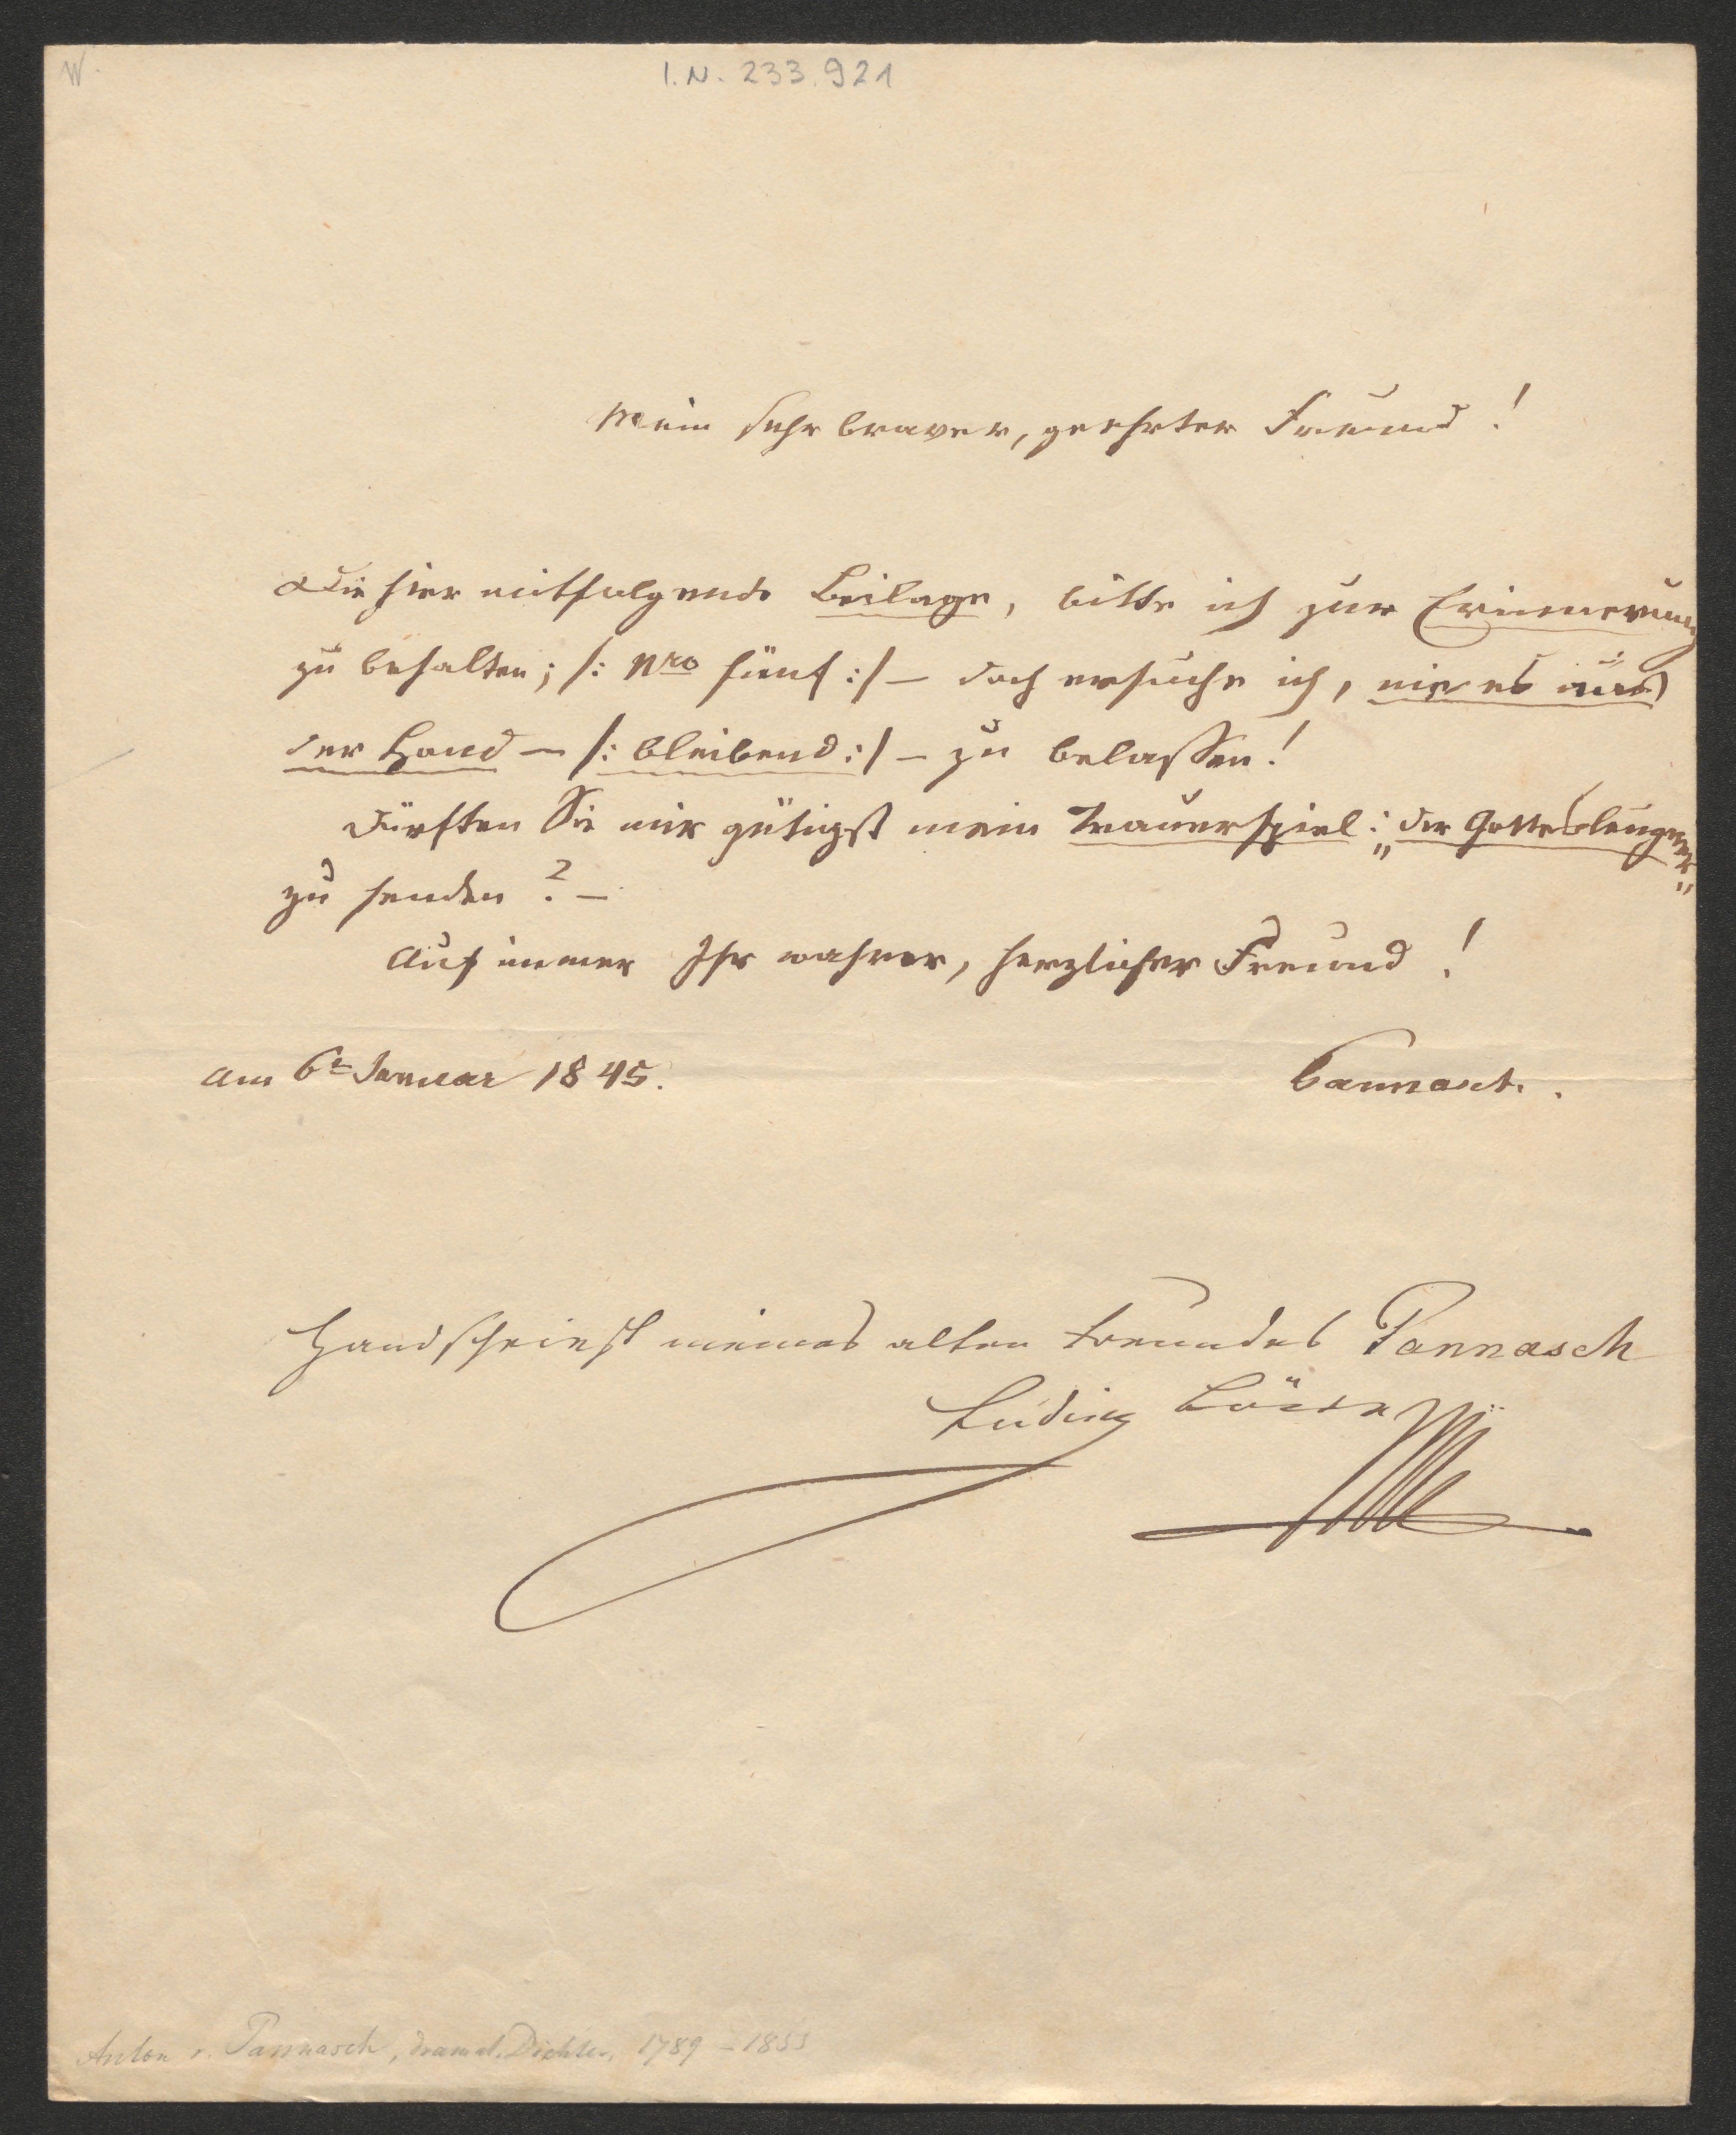 W.
I.N. 233.921
Mein sehr braver, geehrter Freund!
Die hier mitfolgende Beilage, bitte ich zur Erinnerung
zu behalten; /: Nro fünf :/ – doch ersuche ich, nie es aus
der Hand – /: bleibend :/ – zu belassen!
Dürften Sie mir gütigst mein Trauerspiel: „der Gottesleugner"
zu senden? –
Auf immer Ihr wahrer, herzlicher Freund!
Am 6t Januar 1845. Pannasch.
Handschrift meines alten Freundes Pannasch
Ludwig Löwe
Anton v. Pannasch, dramat. Dichter, 1789 – 1855